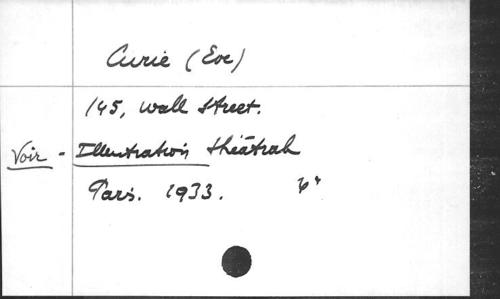 Curie (Eve)
145, Wall Street.
Voir - Illustration théâtrale
Paris. 1933. 4°